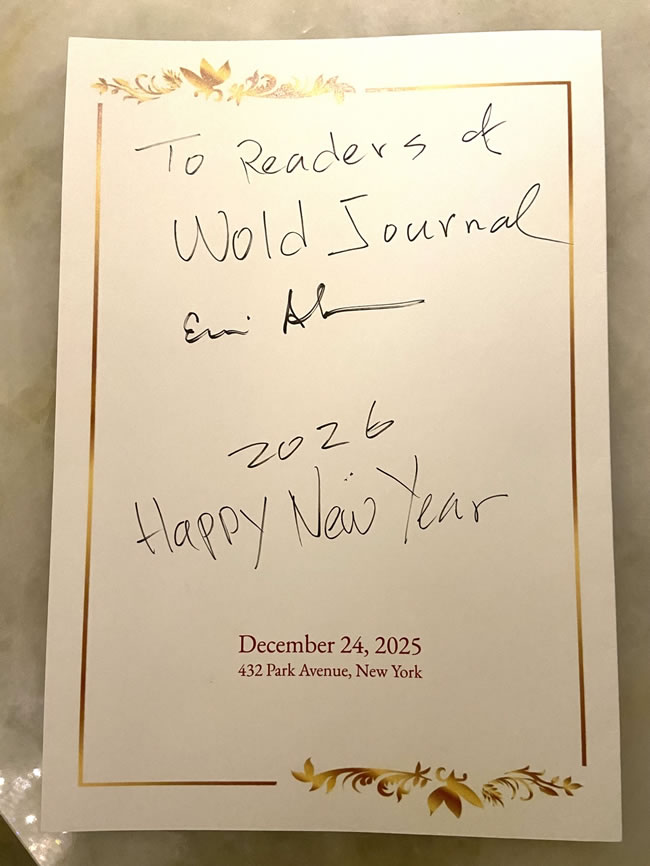 To Readers of
Wold Journal
2026
Happy New Year
December 24, 2025
432 Park Avenue, New York